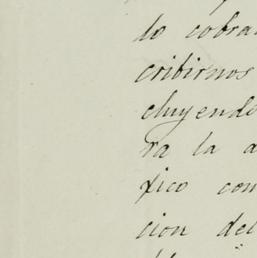 lo cobra
cribirnos
cluyendo
ra la a
fico con
cion del